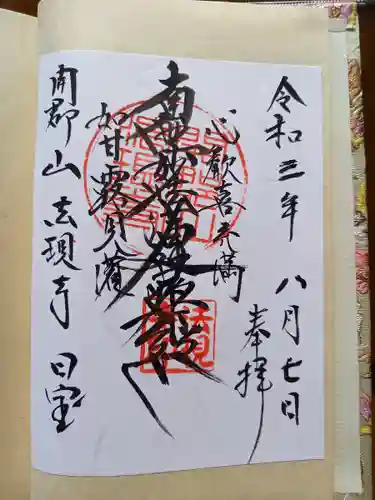 令和三年 八月七日
奉拝
心歓喜充満
南無妙法蓮華経
如甘露見灌
開郡山 法現寺 日宝